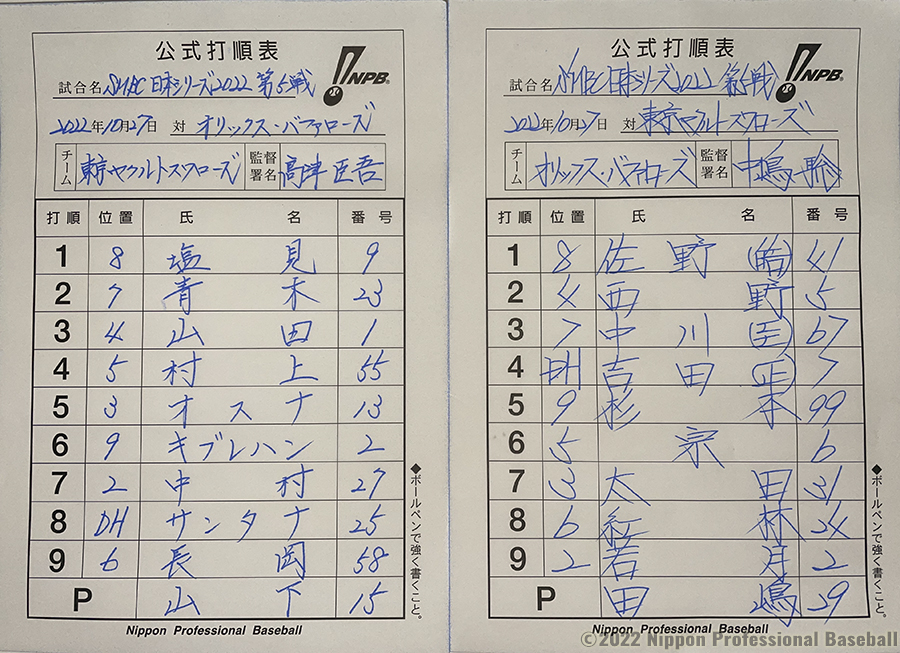 公式打順表
NPB
試合名 SMBC日本シリーズ2022 第5戦
2022年10月27日 対 オリックス・バファローズ
チーム 東京ヤクルトスワローズ 監督署名 高津臣吾
打順 位置 氏名 番号
1 8 塩見 9
2 7 青木 23
3 4 山田 1
4 5 村上 55
5 3 オスナ 13
6 9 キブレハン 2
7 2 中村 27
8 DH サンタナ 25
9 6 長岡 58
P 山下 15
◆ボールペンで強く書くこと。
Nippon Professional Baseball
公式打順表
NPB
試合名 SMBC日本シリーズ2022 第5戦
2022年10月27日 対 東京ヤクルトスワローズ
チーム オリックス・バファローズ 監督署名 中嶋聡
打順 位置 氏名 番号
1 8 佐野(皓) 41
2 4 西野 5
3 7 中川(圭) 67
4 DH 吉田(正) 7
5 9 杉本 99
6 5 宗 6
7 3 太田 31
8 6 紅林 24
9 2 若月 2
P 田嶋 29
◆ボールペンで強く書くこと。
Nippon Professional Baseball
©2022 Nippon Professional Baseball